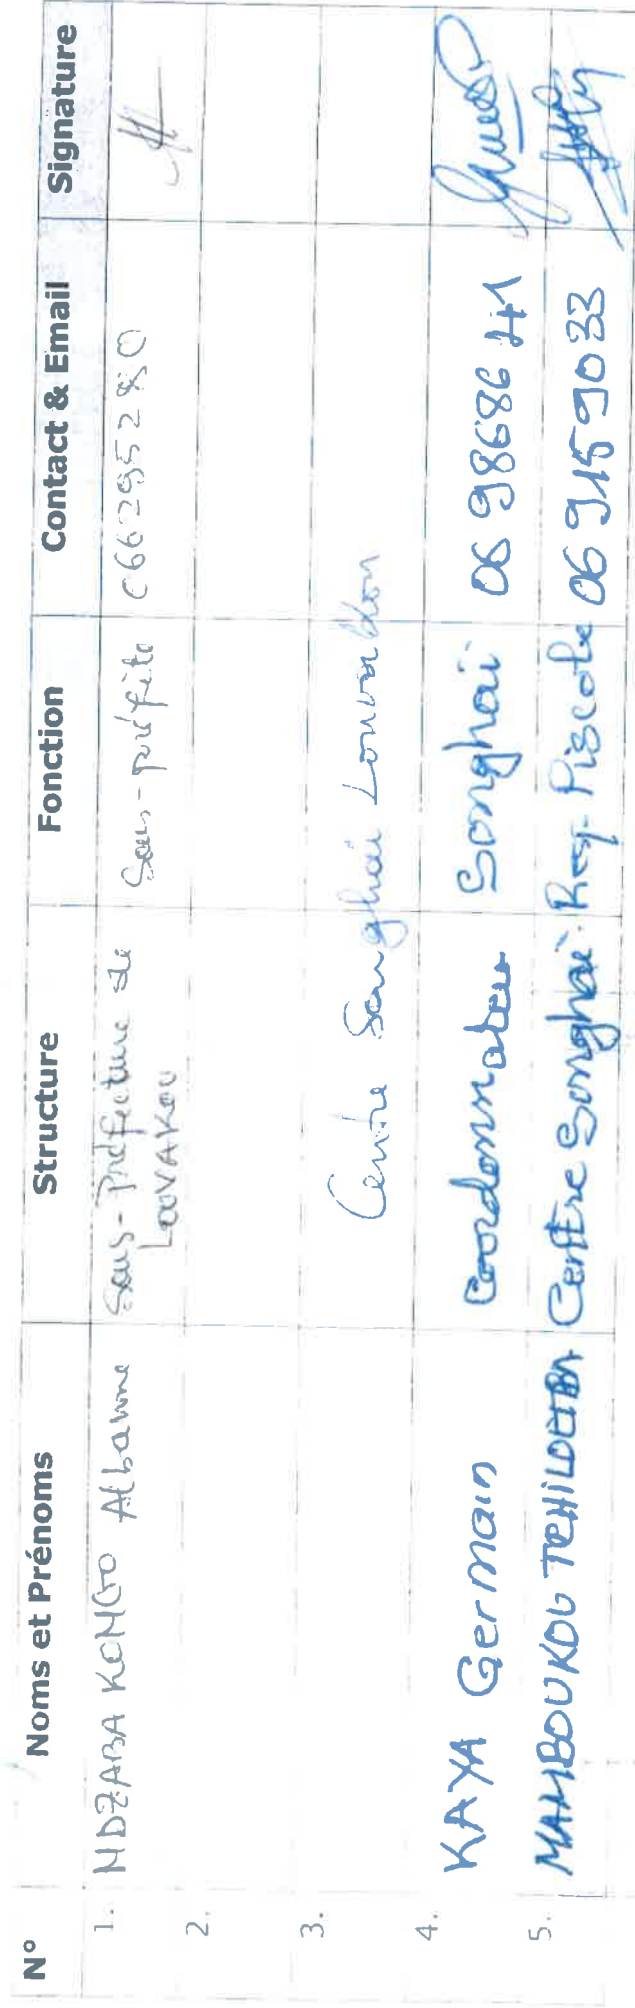 N° Noms et Prénoms Structure Fonction Contact & Email Signature
1. NDZABA KONGO Albanne Sous-Préfecture de LOUVAKOU Sous-préfète 066295280
2.
3. Centre Songhaï Louvakou
4. KAYA Germain Coordonnateur Songhai 06 98686 41
5. MAMBOUKOU TCHILOEMBA Centre Songhai Resp. Piscole 06 9159033